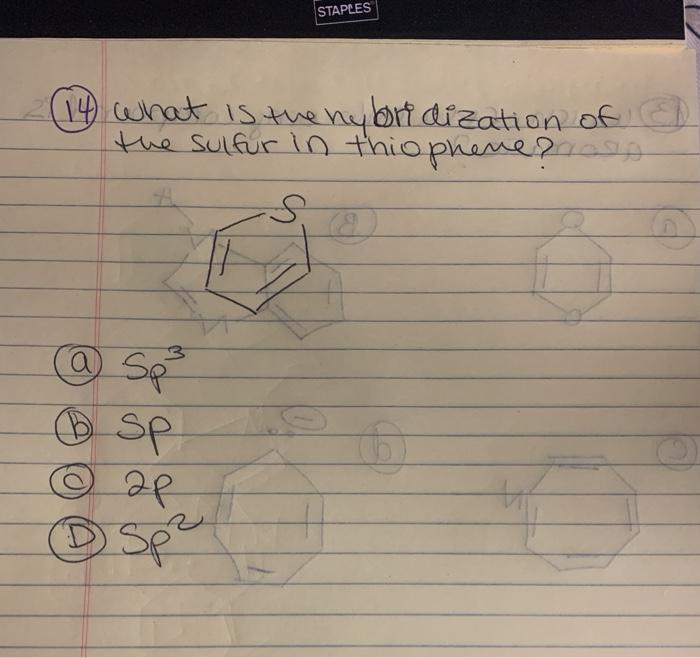 STAPLES
14 What is the hybridization of
the sulfur in thiophene?
S
a Sp³
b Sp
C 2p
D Sp²